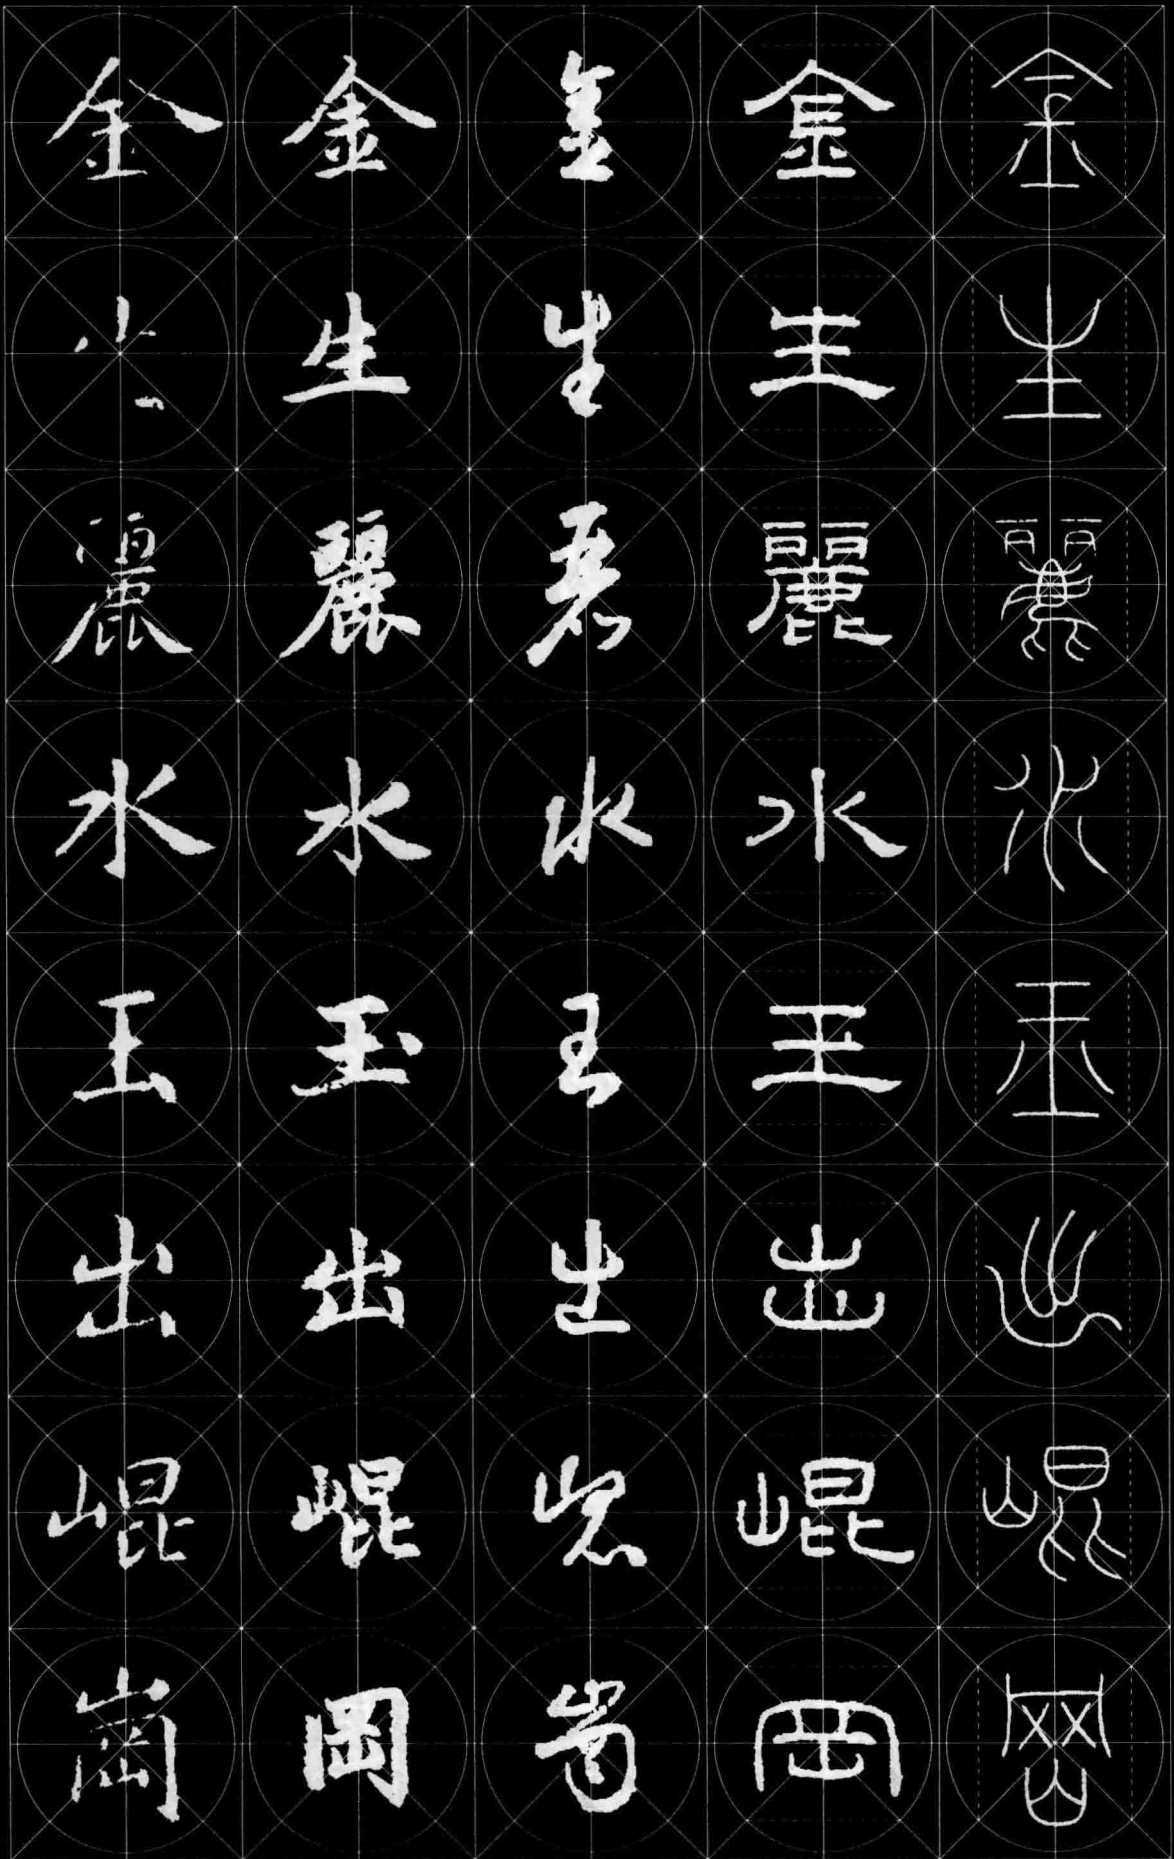 金生麗水玉出崐岡
金生麗水玉出崐岡
金生麗水玉出崐崗
金生麗水玉出崐岡
金生麗水玉出崐崗